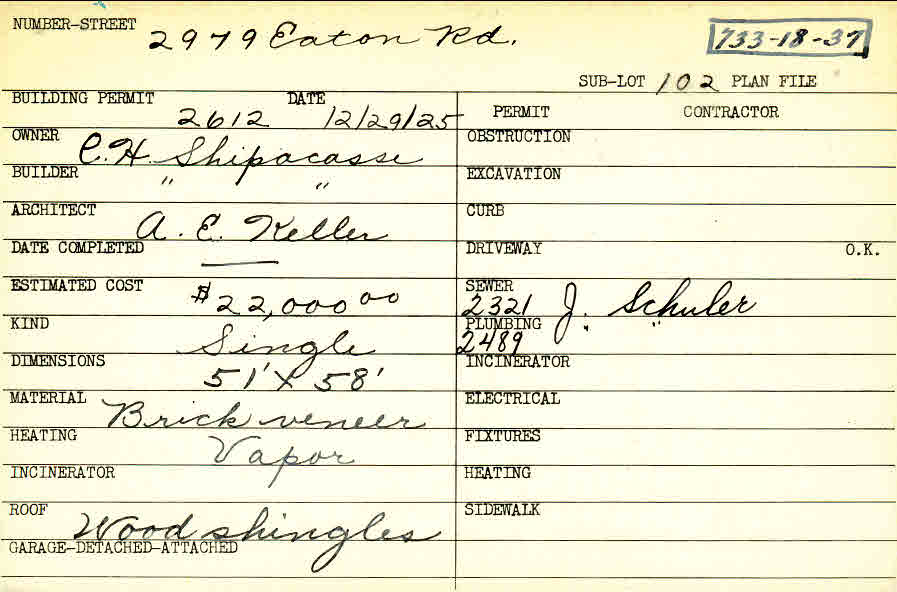 NUMBER-STREET 2979 Eaton Rd. 733-18-37
SUB-LOT 102 PLAN FILE
BUILDING PERMIT 2612 DATE 12/29/25
PERMIT CONTRACTOR
OWNER C.H. Shipacasse
OBSTRUCTION
BUILDER " "
EXCAVATION
ARCHITECT A. E. Keller
CURB
DATE COMPLETED —
DRIVEWAY O.K.
ESTIMATED COST $22,000 00
SEWER 2321 J. Schuler
KIND Single
PLUMBING 2489 " "
DIMENSIONS 51' X 58'
INCINERATOR
MATERIAL Brick veneer
ELECTRICAL
HEATING Vapor
FIXTURES
INCINERATOR
HEATING
ROOF Wood shingles
SIDEWALK
GARAGE-DETACHED-ATTACHED